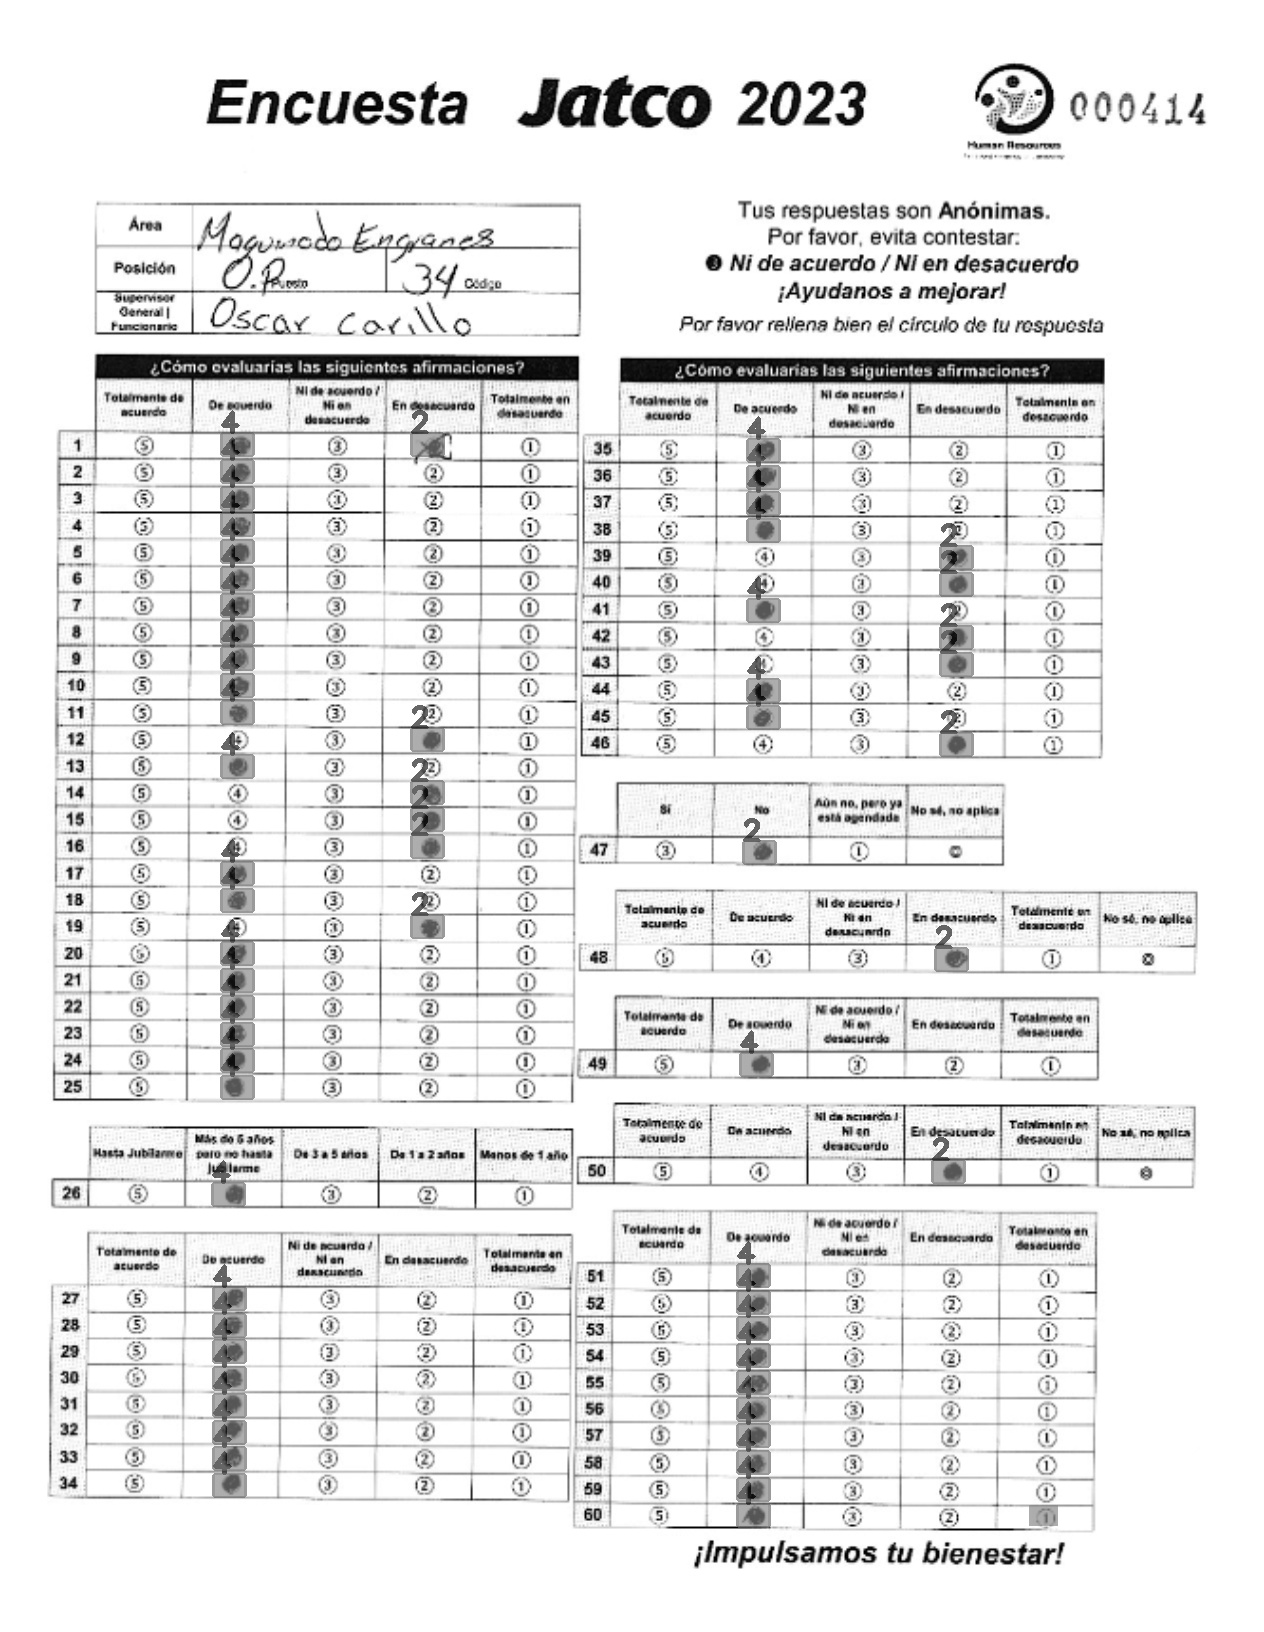 Encuesta Jatco 2023
Human Resources
000414
Área Maquinado Engranes
Posición O.P. Puesto 34 Código
Supervisor General | Funcionario Oscar Carillo
Tus respuestas son Anónimas.
Por favor, evita contestar:
❸ Ni de acuerdo / Ni en desacuerdo
¡Ayudanos a mejorar!
Por favor rellena bien el círculo de tu respuesta
¿Cómo evaluarías las siguientes afirmaciones?
Totalmente de acuerdo De acuerdo Ni de acuerdo / Ni en desacuerdo En desacuerdo Totalmente en desacuerdo
4 2
1 ⑤ ③ ①
2 ⑤ ③ ② ①
3 ⑤ ③ ② ①
4 ⑤ ③ ② ①
5 ⑤ ③ ② ①
6 ⑤ ③ ② ①
7 ⑤ ③ ② ①
8 ⑤ ③ ② ①
9 ⑤ ③ ② ①
10 ⑤ ③ ② ①
11 ⑤ ③ ② ①
12 ⑤ ④ ③ ①
13 ⑤ ③ ② ①
14 ⑤ ④ ③ ①
15 ⑤ ④ ③ ①
16 ⑤ ④ ③ ①
17 ⑤ ③ ② ①
18 ⑤ ③ ② ①
19 ⑤ ④ ③ ①
20 ⑤ ③ ② ①
21 ⑤ ③ ② ①
22 ⑤ ③ ② ①
23 ⑤ ③ ② ①
24 ⑤ ③ ② ①
25 ⑤ ③ ② ①
Hasta Jubilarme Más de 5 años pero no hasta jubilarme De 3 a 5 años De 1 a 2 años Menos de 1 año
4
26 ⑤ ③ ② ①
Totalmente de acuerdo De acuerdo Ni de acuerdo / Ni en desacuerdo En desacuerdo Totalmente en desacuerdo
4
27 ⑤ ③ ② ①
28 ⑤ ③ ② ①
29 ⑤ ③ ② ①
30 ⑤ ③ ② ①
31 ⑤ ③ ② ①
32 ⑤ ③ ② ①
33 ⑤ ③ ② ①
34 ⑤ ③ ② ①
¿Cómo evaluarías las siguientes afirmaciones?
Totalmente de acuerdo De acuerdo Ni de acuerdo / Ni en desacuerdo En desacuerdo Totalmente en desacuerdo
4
35 ⑤ ③ ② ①
36 ⑤ ③ ② ①
37 ⑤ ③ ② ①
38 ⑤ ③ ② ①
39 ⑤ ④ ③ ①
40 ⑤ ④ ③ ①
41 ⑤ ③ ② ①
42 ⑤ ④ ③ ①
43 ⑤ ④ ③ ①
44 ⑤ ③ ② ①
45 ⑤ ③ ② ①
46 ⑤ ④ ③ ①
Sí No Aún no, pero ya está agendada No sé, no aplica
2
47 ③ ① ⓪
Totalmente de acuerdo De acuerdo Ni de acuerdo / Ni en desacuerdo En desacuerdo Totalmente en desacuerdo No sé, no aplica
2
48 ⑤ ④ ③ ① ⓪
Totalmente de acuerdo De acuerdo Ni de acuerdo / Ni en desacuerdo En desacuerdo Totalmente en desacuerdo
4
49 ⑤ ③ ② ①
Totalmente de acuerdo De acuerdo Ni de acuerdo / Ni en desacuerdo En desacuerdo Totalmente en desacuerdo No sé, no aplica
2
50 ⑤ ④ ③ ① ⓪
Totalmente de acuerdo De acuerdo Ni de acuerdo / Ni en desacuerdo En desacuerdo Totalmente en desacuerdo
4
51 ⑤ ③ ② ①
52 ⑤ ③ ② ①
53 ⑤ ③ ② ①
54 ⑤ ③ ② ①
55 ⑤ ③ ② ①
56 ⑤ ③ ② ①
57 ⑤ ③ ② ①
58 ⑤ ③ ② ①
59 ⑤ ③ ② ①
60 ⑤ ③ ② ①
¡Impulsamos tu bienestar!